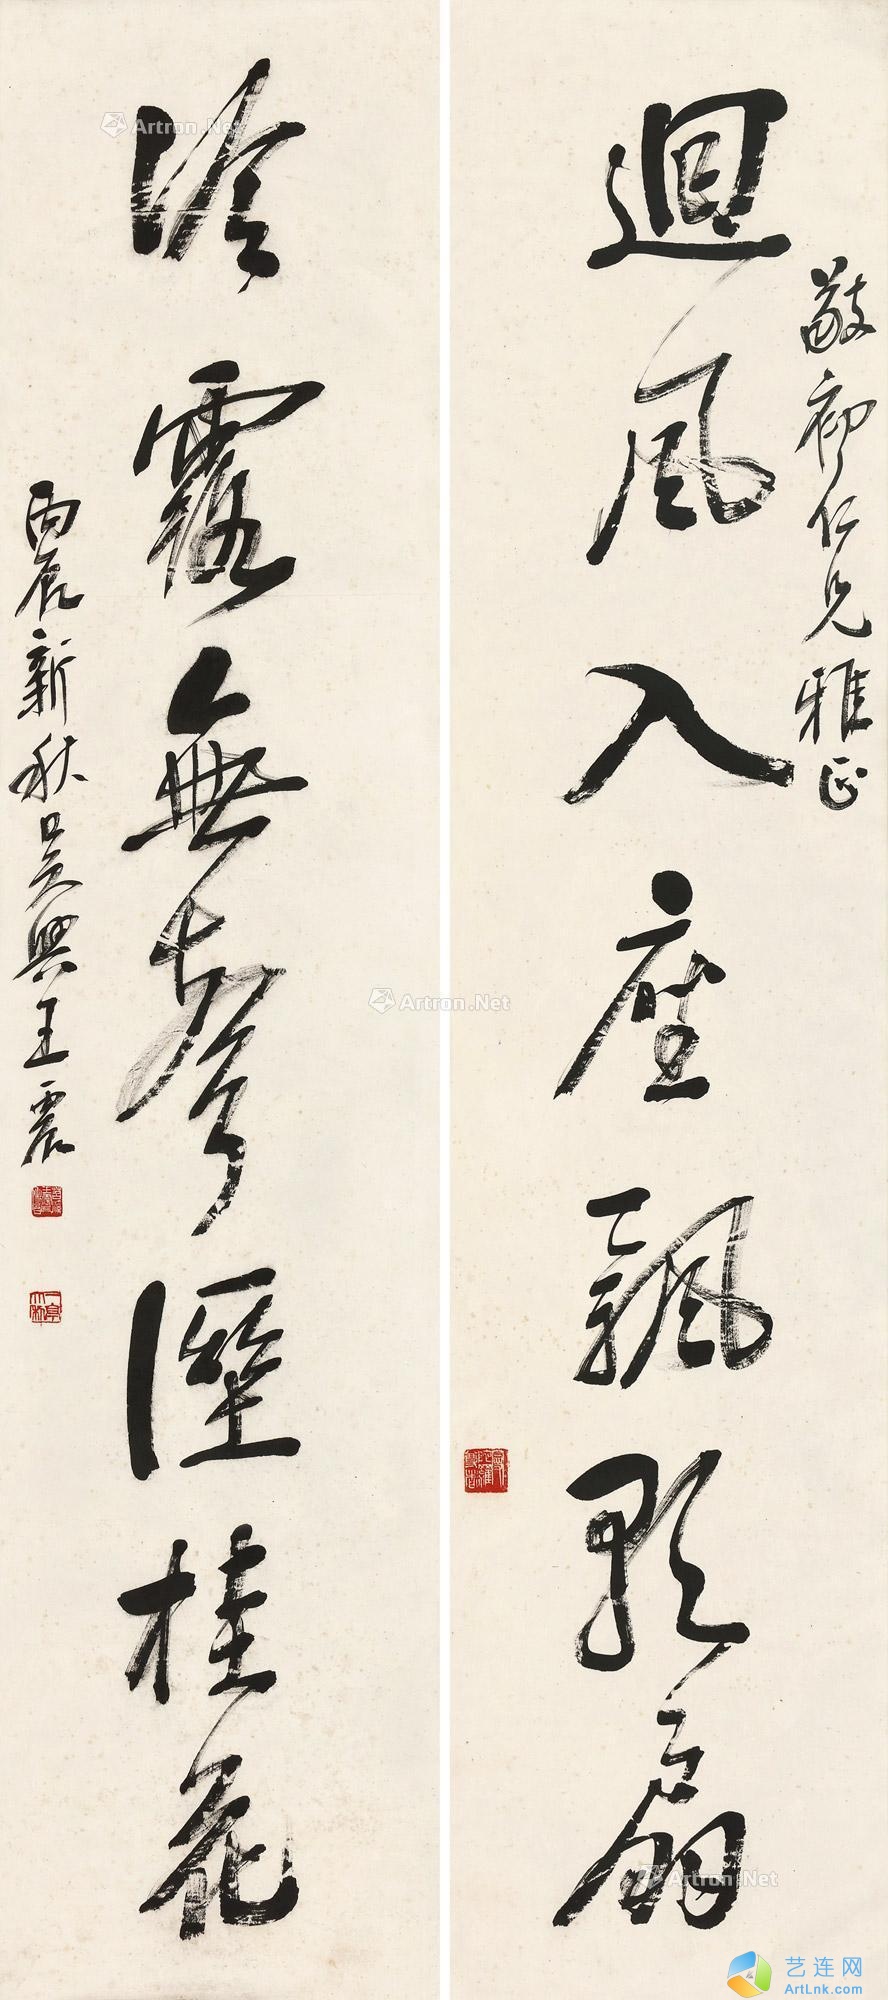 敬仁兄雅正
迴風入座飄歌扇
冷露無聲溼桂花
丙辰新秋吳興王震
Artron.Net
Artron.Net
Artron.Net
艺连网
ArtLnk.com